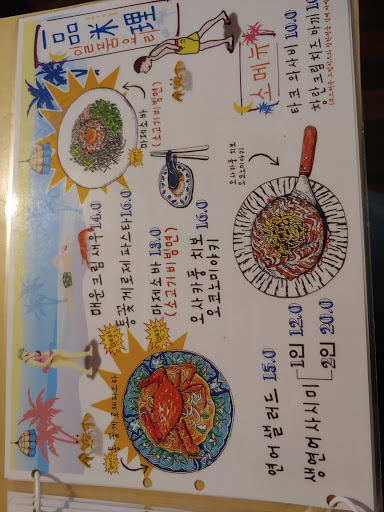 一品料理
일품요리
마제소바
(소고기비빔면)
매운크림새우 14.0
통꽃게로제파스타 16.0
마제소바 13.0
(소고기비빔면)
오사카풍 치보
오코노미야키 16.0
통꽃게로제파스타
소메뉴
타코 와사비 10.0
창란크림치즈 마끼 10.0
오사카풍 치보
오코노미야키
연어샐러드 15.0
생연어사시미
1인 12.0
2인 20.0